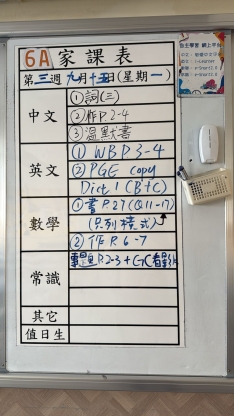 6A 家課表
第三週九月十五日(星期一)
中文
①詞(三)
②作P.2-4
③溫默書
英文
①WB P.3-4
②PGE copy
Dict 1 (B+C)
數學
①書P.27(Q11-17)
(只列橫式)
②作P.6-7
常識
P.2-3+GC
其它
值日生
自主學習 網上平台